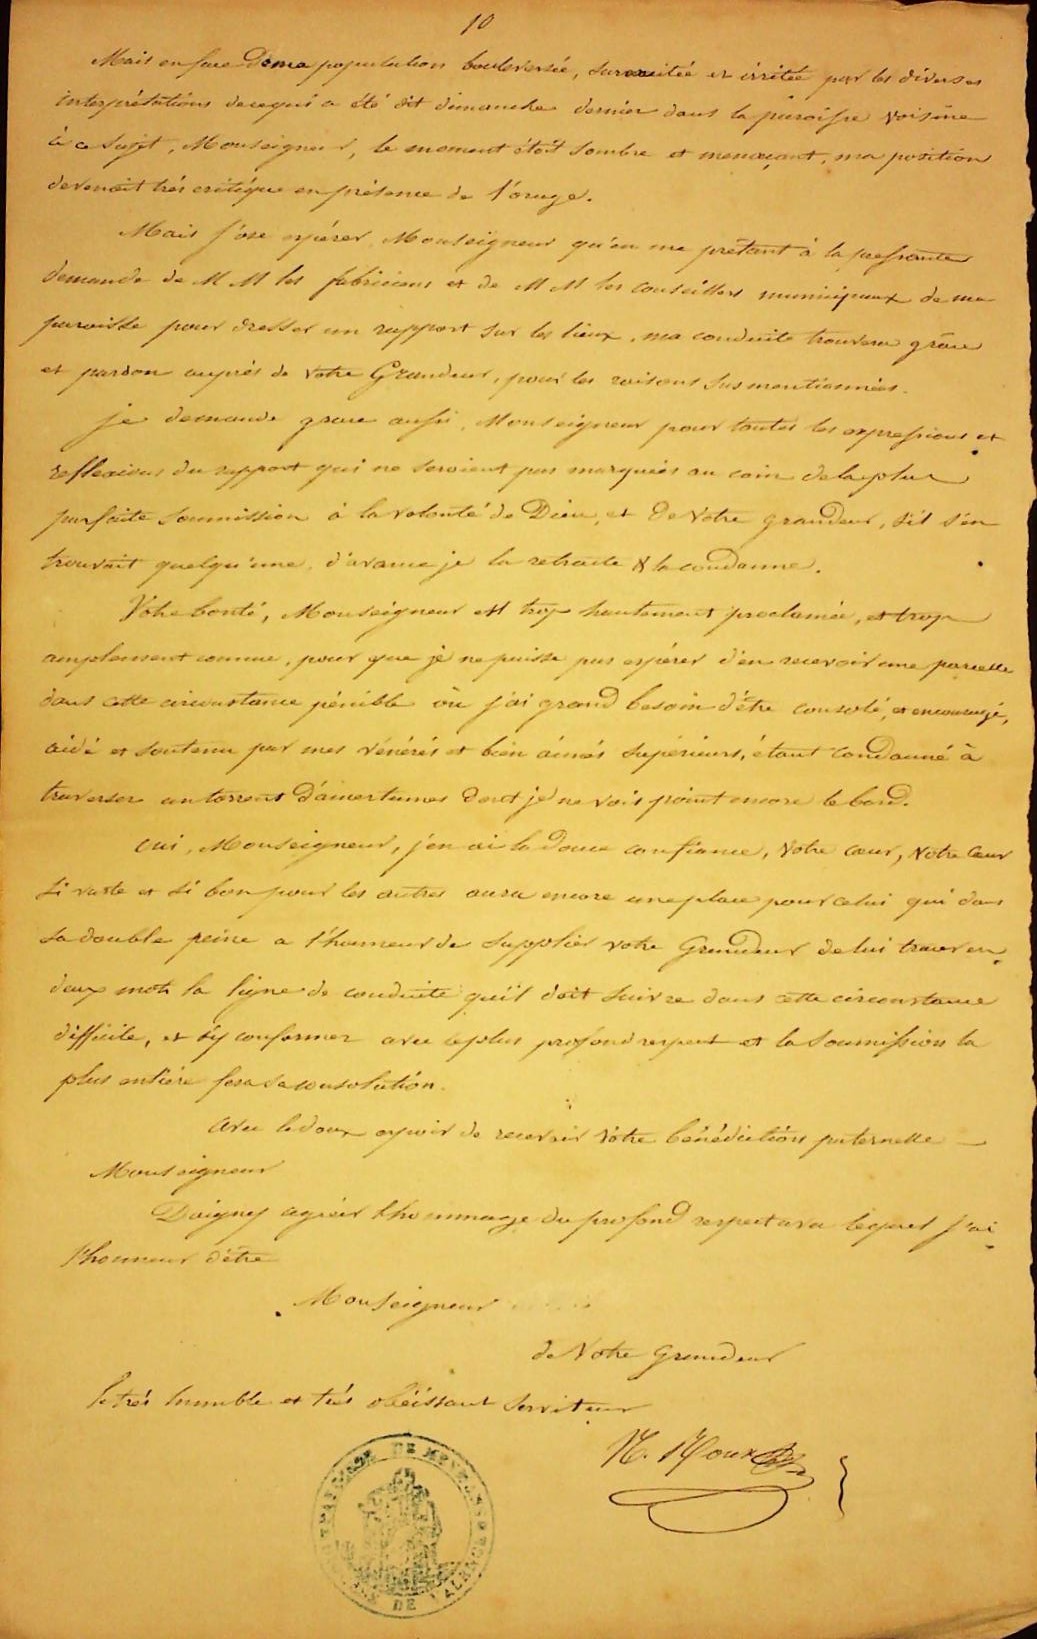 10
Mais en face de ma population bouleversée, surexcitée et irritée par les diverses
interprétations de ce qui a été dit dimanche dernier dans la paroisse voisine
à ce sujet, Monseigneur, le moment était sombre et menaçant, ma position
devenait très critique en présence de l'orage.
Mais j'ose espérer, Monseigneur qu'en me prêtant à la pressante
demande de M M les fabriciens et de M M les conseillers municipaux de ma
paroisse pour dresser un rapport sur les lieux, ma conduite trouvera grâce
et pardon auprès de votre Grandeur, pour les raisons sus mentionnées.
je demande grace aussi, Monseigneur pour toutes les expressions et
reflexions du rapport qui ne seroient pas marquées au coin de la plus
parfaite soumission à la volonté de Dieu, et de votre grandeur, s'il s'en
trouvait quelqu'une, d'avance je la retracte & la condamne.
Votre bonté, Monseigneur est trop hautement proclamée, et trop
amplement connue, pour que je ne puisse pas espérer d'en recevoir une parcelle
dans cette circonstance pénible où j'ai grand besoin d'être consolé, et encouragé,
aidé et soutenu par mes vénérés et bien aimés supérieurs, étant condamné à
traverser un torrent d'amertumes dont je ne vois point encore le bord.
Oui, Monseigneur, j'en ai la douce confiance, votre cœur, votre cœur
si vaste et si bon pour les autres aura encore une place pour celui qui dans
sa double peine a l'honneur de supplier votre Grandeur de lui tracer en
deux mots la ligne de conduite qu'il doit suivre dans cette circonstance
difficile, et s'y conformer avec le plus profond respect et la soumission la
plus entière fera sa consolation.
Avec le doux espoir de recevoir votre bénédiction paternelle
Monseigneur
Daignez agréer l'hommage du profond respect avec lequel j'ai
l'honneur d'être
Monseigneur
de Votre Grandeur
le très humble et très obéissant serviteur
M. Roux
DE VALENCE